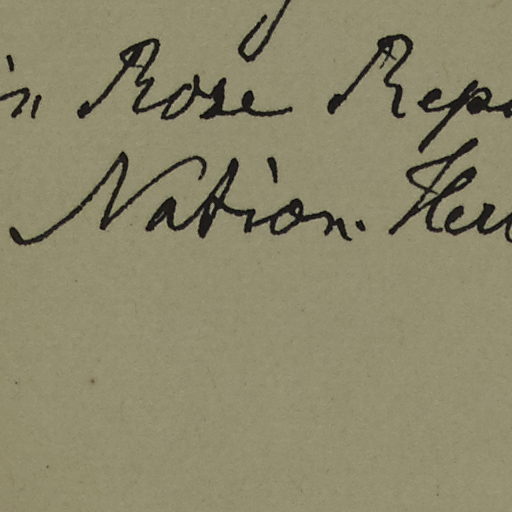 in Rose Repo
Nation. Her